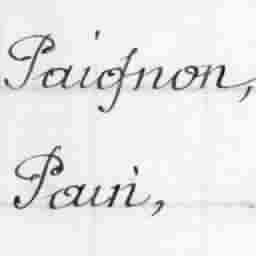 Paignon,
Pain,